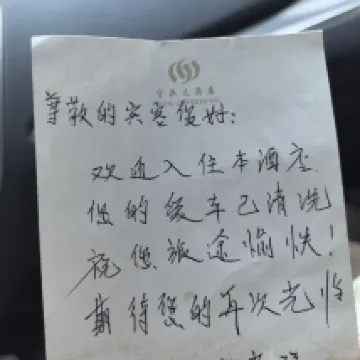 尊敬的宾客您好：
欢迎入住本酒店
您的爱车已清洗
祝您旅途愉快！
期待您的再次光临